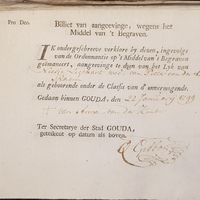 Pro Deo.
Billiet van aangeevinge, wegens het
Middel van 't Begraven.
IK ondergeschreven verklare by desen, ingevolge
van de Ordonnantie op 't Middel van 't Begraven
geëmaneert, aangeevinge te doen van het Lyk van
als gehoorende onder de Classis van d' onvermogende.
Gedaan binnen GOUDA, den 22 January 1799
Ter Secretarye der Stad GOUDA,
getekent op datum als boven.